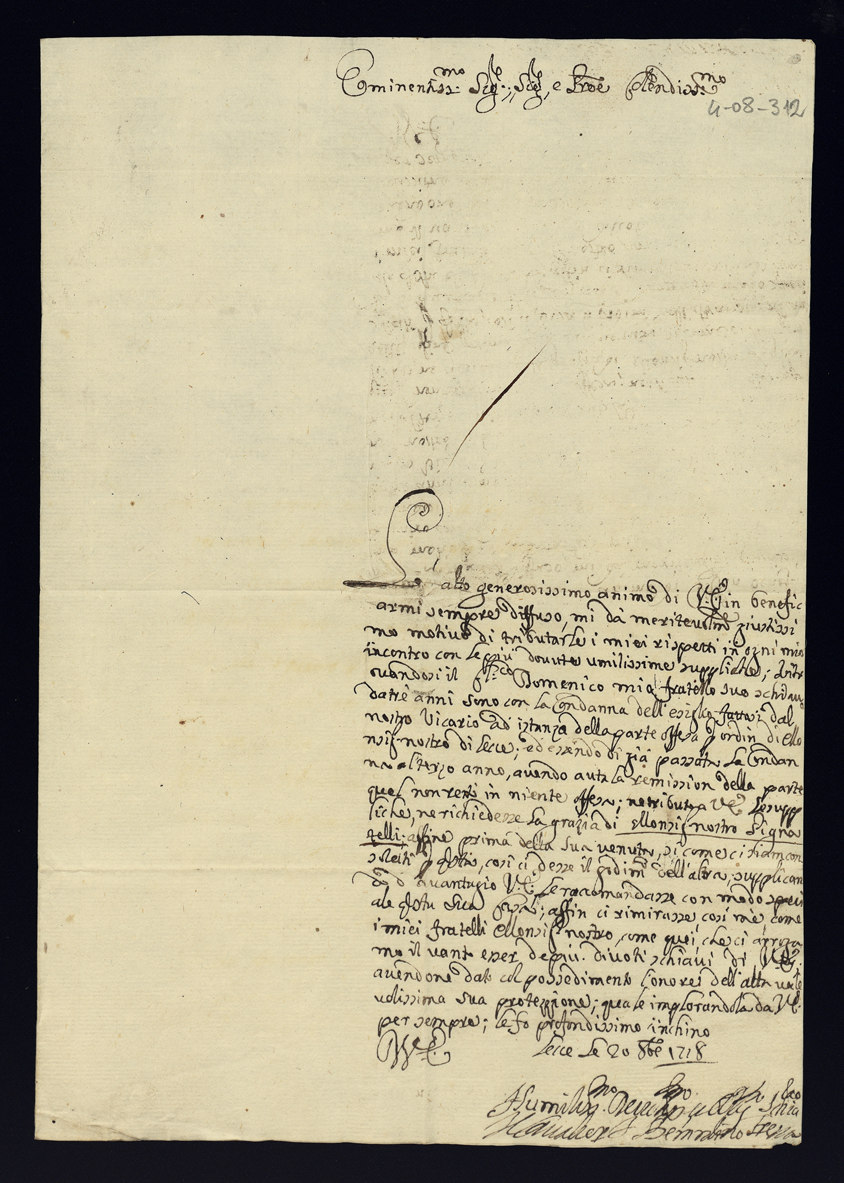 Eminentiss.mo Sig.re, Sig.re, e Prōe Colendiss.mo
4-08-312
L'alto generosissimo animo di V.E. in benefic
armi sempre diffuso, mi dà meritevolm.e giustissi
mo motivo di tributarle i miei rispetti in ogni mio
incontro con le più dovute umilissime suppliche; Ritr
ovandosi il Domenico mio fratello suo schiavo
da tré anni sono con la Condanna dell'esiglio fattasi dal
nostro Vicario ad istanza della parte offesa ordin di
nostro di Lecce; ed essendo di già passata la Condan
na al terzo anno, avendo auta la remission della parte
qual non restò in niente offesa; ne tributa V.E. le supp
liche, ne richiedesse la grazia di Monsig.r nostro Pigna
telli; affine prima della sua venuta, si come ci fiam con
così ci desse il godim.to dell'altra, supplican
do d'avantagio V.E. le racomandasse con modo speci
ale sua affin ci rimirasse così me come
i miei fratelli Monsig.r nostro, come quei che ci aproza
mo il vanto esser depiu divoti schiavi di V.E.
avendone dato col possedimento l'onore dell'alta vale
volissima sua protezzione; quale implorandola da V.E.
per sempre; le fo profondissimo inchino
V.E. Lecce le 20 8bre 1718
Humiliss.mo